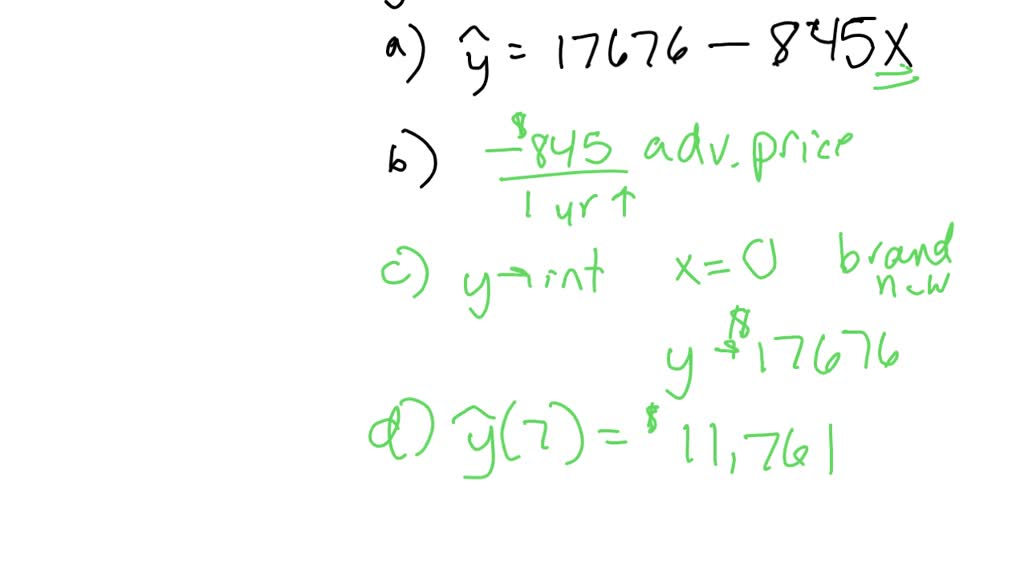 a) ŷ = 17676 - 845x
b) -$845 adv. price
1 yr ↑
c) y-int x=0 brand new
y = $17676
d) ŷ(7) = $11,761